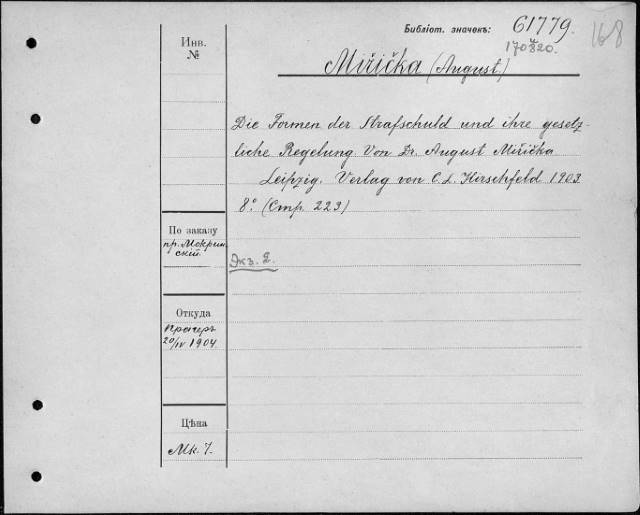 Библіот. значекъ: 61779. 168
170820.
Инв.
№
Miřička (August.)
Die Formen der Strafschuld und ihre gesetz-
liche Regelung. Von Dr. August Miřička
Leipzig. Verlag von C. L. Hirschfeld 1903
8.° (Стр. 223)
По заказу
пр. Мокрин-
скій
Экз. 2.
Откуда
Прагеръ
20/IV 1904
Цѣна
Мк. 7.